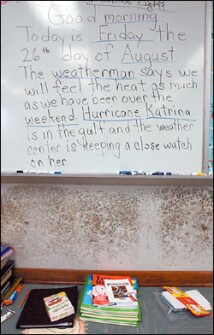 Lights
Good morning
Today is Friday the
26th day of August
The weatherman says we
will feel the heat as much
as we have been over the
weekend Hurricane Katrina
is in the gulf and the weather
center is keeping a close watch
on her.